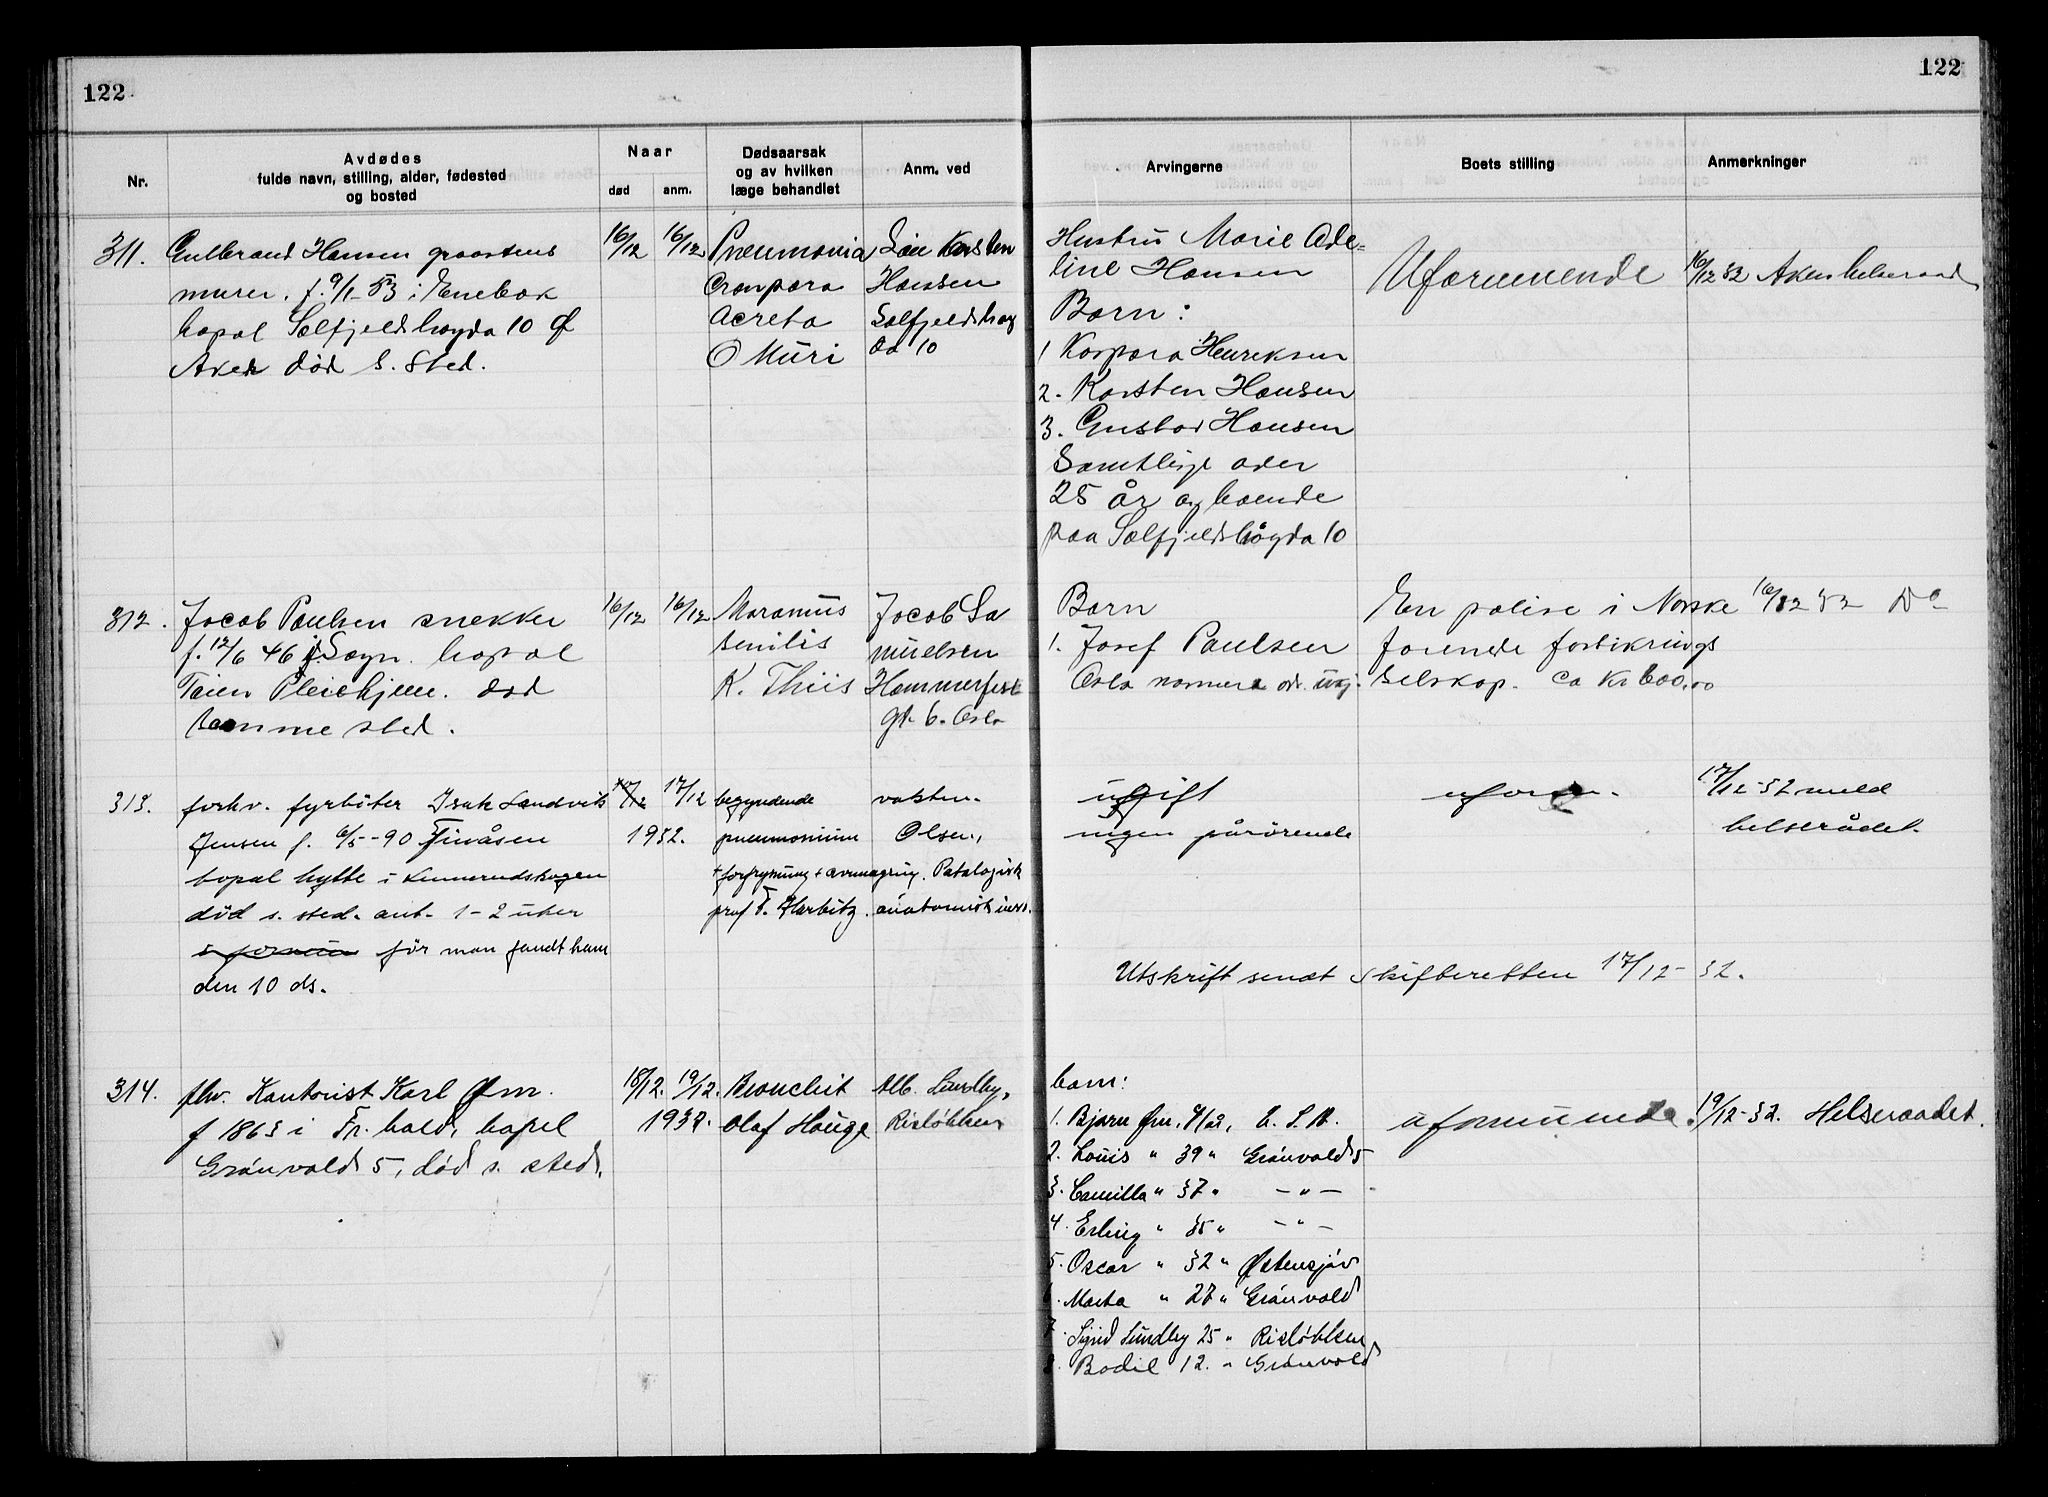 122
122
Nr.
Avdødes
fulde navn, stilling, alder, fødested
og bosted
Naar
død
anm.
Dødsaarsak
og av hvilken
læge behandlet
Anm. ved
Arvingerne
Boets stilling
Anmerkninger
311.
Gulbrand Hansen graastens
murer. f. 9/1-53 i Enebak
bopal Solfjeldshøgda 10 Ø
Aker død s. Sted.
16/12
16/12
Pneumonia
Croupøra
Acreta
O Muri
Karsten
Hansen
Solfjeldshøg
da 10
Hustru Marie Ade-
line Hansen
Barn:
1 Kaspara Henriksen
2. Karsten Hansen
3. Gustav Hansen
Samtlige over
25 år og boende
paa Solfjeldshøgda 10
Uformuende
16/12 32 Aker helseraad
312.
Jocob Paulsen snekker
f. 12/6 46 i Sogn. bopal
Tøien Pleiehjem. død
samme sted.
16/12
16/12
Maramus
senilis
K. Thiis
Jacob Sa
muelsen
Hammerfest
gt. 6. Oslo
Barn
1. Josef Paulsen
Oslo nærmere adr. ukj.
En polise i Norske
forende forsikrings
selskap. ca Kr 600,00
16/12 32 Do
313.
forhv. fyrbøter Isak Sandvik
Jensen f. 6/5-90 Finåsen
bopal hytte i skogen
død s. sted. ant. 1-2 uker
før man fandt ham
den 10 ds.
17/12
1932.
17/12
begyndende
pneumonium
+ forfrysning + avmagring.
prof F. Harbitz.
vaktm.
Olsen,
Patalogisk
anatomisk
ugift
ingen pårörende
17/12-32 meld
helserådet.
Utskrift sendt Skifteretten 17/12-32.
314.
fhv. Kontorist Karl Ørn.
f 1863 i Fr.hald, bopel
Grønvold 5, død s. sted.
18/12.
1932.
19/12.
Bronchit
Olaf Hauge
Alb. Lundby,
Risløkken
barn:
1. Bjarn Ørn, 41 år,
2. Louis " 39 " Grønvold 5
3. Camilla " 37 " - " -
4. Erling " 35 " - " -
5. Oscar " 32 " Østensjøv
6. Marta " 27 " Grønvold
7. Sigrid Lundby 25 " Risløkken
8. Bodil 12. " Grønvold
uformuende.
19/12-32. Helseraadet.